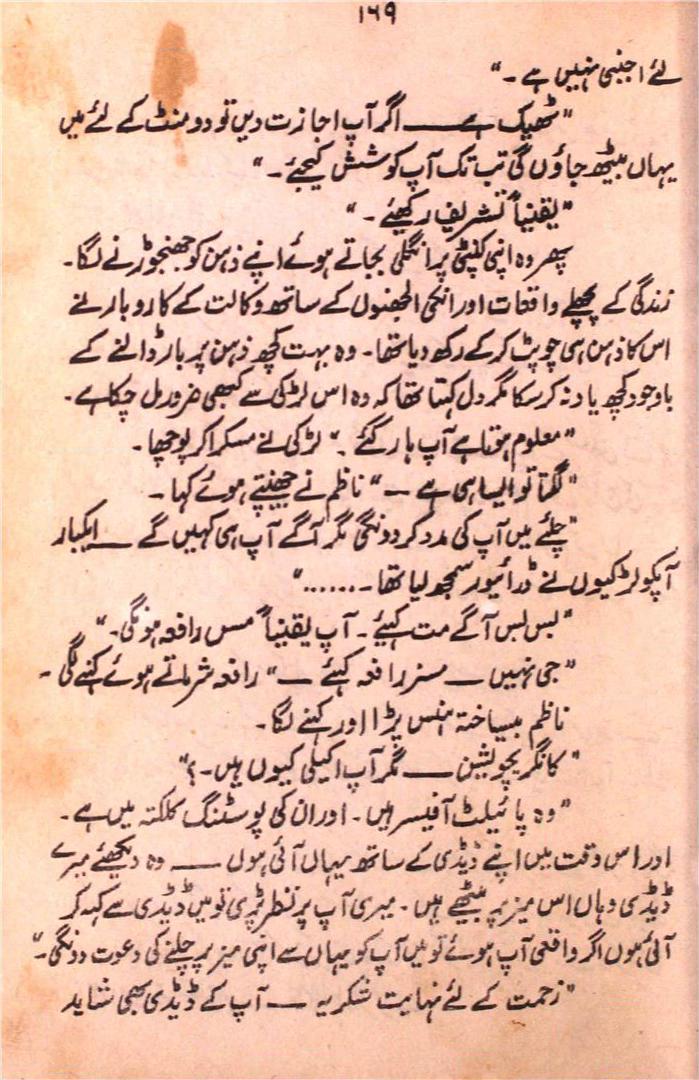 ۱۶۹
لئے اجنبی نہیں ہے ۔"
"ٹھیک ہے ــــ اگر آپ اجازت دیں تو دو منٹ کے لئے میں
یہاں بیٹھ جاؤں گی تب تک آپ کوشش کیجئے ۔"
"یقیناً تشریف رکھیئے ۔"
پھر وہ اپنی کنپٹی پر انگلی بجاتے ہوئے اپنے ذہن کو جھنجوڑنے لگا۔
زندگی کے پچھلے واقعات اور انکی الجھنوں کے ساتھ وکالت کے کاروبار نے
اس کا ذہن ہی چوپٹ کرکے رکھ دیا تھا۔ وہ بہت کچھ ذہن پر بار ڈالنے کے
باوجود کچھ یاد نہ کرسکا مگر دل کہتا تھا کہ وہ اس لڑکی سے کبھی ضرور مل چکا ہے۔
"معلوم ہوتا ہے آپ ہار گئے ۔" لڑکی نے مسکرا کر پوچھا۔
"لگتا تو ایسا ہی ہے ۔" ناظم نے جھینپتے ہوئے کہا ۔
"چلئے میں آپ کی مدد کر دونگی مگر آگے آپ ہی کہیں گے ــ ایکبار
آپکو لڑکیوں نے ڈرائیور سمجھ لیا تھا ۔......"
"بس بس آگے مت کہیئے ۔ آپ یقیناً مس رافعہ ہونگی۔"
"جی نہیں ــ مسز رافعہ کہیئے ــ" رافعہ شرماتے ہوئے کہنے لگی ۔
ناظم بیساختہ ہنس پڑا اور کہنے لگا۔
"کانگریچولیشن ــــ مگر آپ اکیلی کیوں ہیں ۔؟"
"وہ پائیلٹ آفیسر ہیں ۔ اور ان کی پوسٹنگ کلکتہ میں ہے ۔
اور اس وقت میں اپنے ڈیڈی کے ساتھ یہاں آئی ہوں ــــ وہ دیکھئے میرے
ڈیڈی وہاں اس میز پر بیٹھے ہیں ۔ میری آپ پر نظر پڑی تو میں ڈیڈی سے کہہ کر
آئی ہوں اگر واقعی آپ ہوئے تو میں آپ کو یہاں سے اپنی میز پر چلنے کی دعوت دونگی ۔"
"زحمت کے لئے نہایت شکریہ ــ آپ کے ڈیڈی بھی شاید